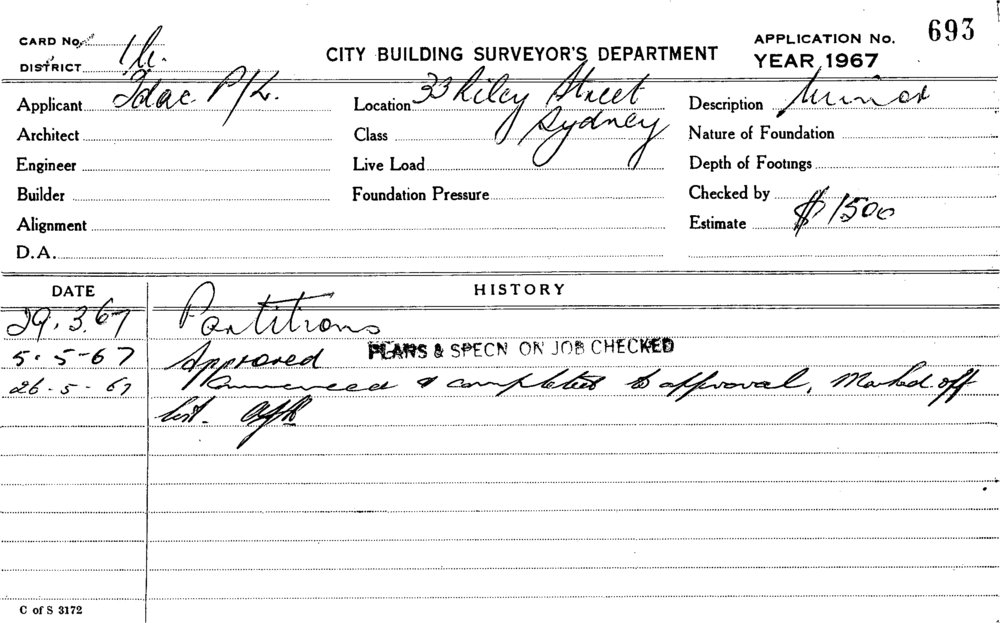 693
CARD No.
DISTRICT
CITY BUILDING SURVEYOR'S DEPARTMENT
APPLICATION No.
YEAR 1967
Applicant Idac P/L.
Location 33 Riley Street
Sydney
Description Minor
Architect
Class
Nature of Foundation
Engineer
Live Load
Depth of Footings
Builder
Foundation Pressure
Checked by
Alignment
Estimate $1500
D.A.
DATE HISTORY
29.3.67 Partitions
5-5-67 Approved PLANS & SPECN ON JOB CHECKED
26-5-67 Commenced & completed to approval, Marked off
list.
C of S 3172